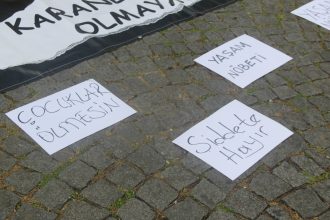 OLMAYI
YAŞAM
NÖBETİ
ÇOCUKLAR
ÖLMESİN
Şiddete
Hayır